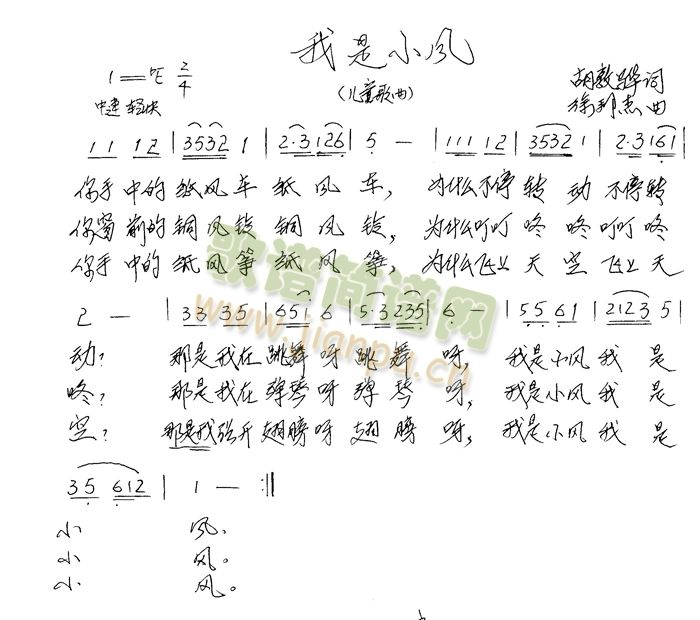 我是小风
(儿童歌曲)
1=♭E 2/4
中速 轻快
胡敦骅词
徐邦杰曲
11 12 | 3532 1 | 2·3126 | 5 — | 111 12 | 3532 1 | 2·3161 |
你手中的纸风车纸风车, 为什么不停转动不停转
你窗前的铜风铃铜风铃, 为什么叮叮咚咚叮叮咚
你手中的纸风筝纸风筝, 为什么飞上天空飞上天
2 — | 33 35 | 651 6 | 5·3235 | 6 — | 55 61 | 2123 5 |
动? 那是我在跳舞呀跳舞呀, 我是小风我是
咚? 那是我在弹琴呀弹琴呀, 我是小风我是
空? 那是我张开翅膀呀翅膀呀, 我是小风我是
35 612 | 1 — :||
小风.
小风。
小风。
歌谱简谱网
www.jianpu.cn